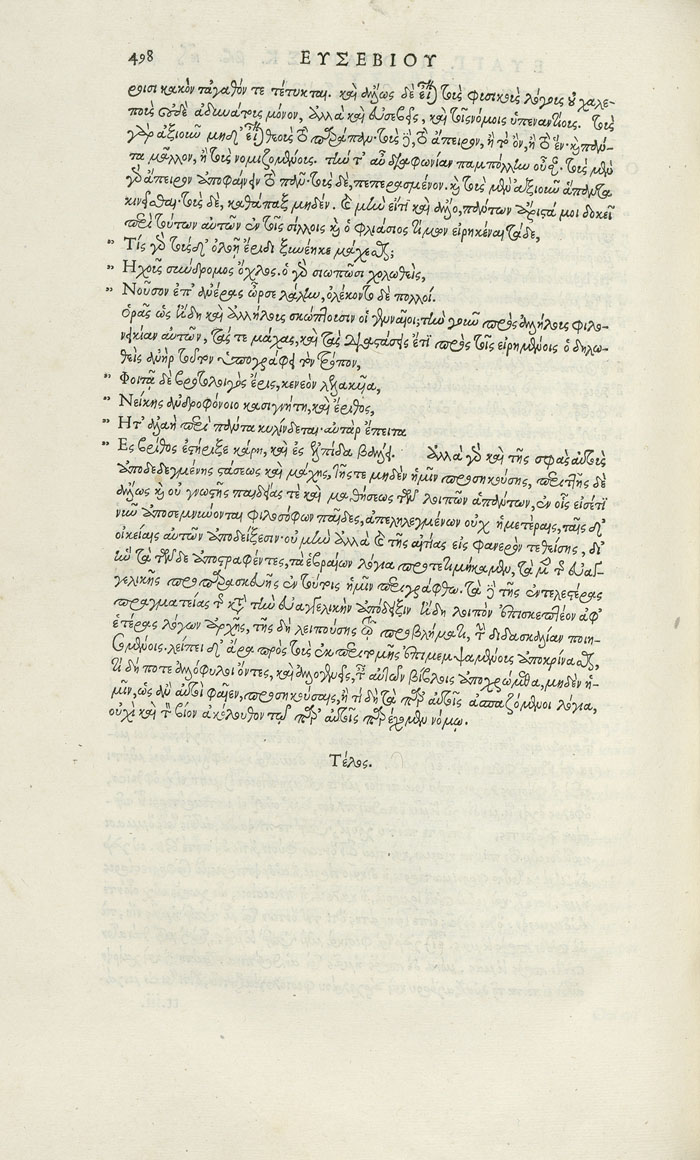 498 ΕΥΣΕΒΙΟΥ
φρισι κακὸν τἀγαθόν τε τέτυκται. καὶ ἄλλως δὲ εἶναι τοῖς φισικοῖς λόγοις οὐ χαλε-
ποῖς οὐδὲ ἀδυνάτοις μόνον, ἀλλὰ καὶ ἀσεβέσι, καὶ τοῖς νόμοις ὑπεναντίοις. τοὺς
γὰρ ἀξιοῦν μηδ' εἶναι θεοὺς τὸ παράπαν. τοὺς δὲ, τὸ ἄπειρον, ἢ τὸ ὂν, ἢ τὸ ἓν. καὶ πάν-
τα μᾶλλον, ἢ τοὺς νομιζομένους. τὴν τ' αὖ διαφωνίαν παμπόλλην οὖσαν. τοὺς μὲν
γὰρ ἄπειρον ἀποφαίνειν τὸ πᾶν. τοὺς δὲ, πεπερασμένον. καὶ τοὺς μὲν ἀξιοῦν ἅπαντα
κινεῖσθαι. τοὺς δὲ, καθάπαξ μηδέν. καὶ μὴν ἔτι καὶ ἄλλο, πάντων ἄριστά μοι δοκεῖ
περὶ τούτων αὐτῶν ἐν τοῖς σίλλοις καὶ ὁ Φλιάσιος Τίμων εἰρηκέναι τάδε,
" Τίς γὰρ τούσδ' ὀλοῇ ἔριδι ξυνέηκε μάχεσθαι;
" Ηχοῖς σύνδρομος ὄχλος. ὁ γὰρ σιωπῶσι χολωθεὶς,
" Νοῦσον ἐπ' ἀνέρας ὦρσε λάλην, ὀλέκοντο δὲ πολλοί.
ὁρᾷς ὡς ἤδη καὶ ἀλλήλους σκώπτουσιν οἱ γενναῖοι; τὴν γοῦν πρὸς ἀλλήλους φιλο-
νεικίαν αὐτῶν, τάς τε μάχας, καὶ τὰς διαστάσεις ἔτι πρὸς τοῖς εἰρημένοις ὁ δηλω-
θεὶς ἀνὴρ τοῦτον ὑπογράφει τὸν τρόπον,
" Φοιτᾷ δὲ βροτολοιγὸς ἔρις, κενεὸν λελακυῖα,
" Νείκης ἀνδροφόνοιο κασιγνήτη, καὶ ἔριθος,
" Ητ' ἀλαὴ περὶ πάντα κυλίνδεται. αὐτὰρ ἔπειτα
" Ες βρῖθος ἐστήριξε κάρη, καὶ ἐς ἐλπίδα βάλλει. ἀλλὰ γὰρ καὶ τῆς σφᾶς αὐτοὺς
ἀποδεδεγμένης στάσεως καὶ μάχης, τῆς τε μηδὲν ἡμῖν προσηκούσης, περιττῆς δὲ
ἄλλως καὶ οὐ γνωστῆς παιδείας τὲ καὶ μαθήσεως τῶν λοιπῶν ἁπάντων, ἐν οἷς εἰσέτι
νῦν ἀποσεμνύνονται φιλοσόφων παῖδες, ἀπεληλεγμένων οὐχ ἡμετέραις, ταῖς δ'
οἰκείαις αὐτῶν ἀποδείξεσιν. οὐ μὴν ἀλλὰ καὶ τῆς αἰτίας εἰς φανερὸν τεθείσης, δι'
ἣν τὰ τῶνδε ἀποστραφέντες, τὰ ἑβραίων λόγια προτετιμήκαμεν, τὰ μὲν τῆς εὐαγ-
γελικῆς προπαρασκευῆς ἐν τούτοις ἡμῖν περιγράφθω. τὰ δὲ τῆς ἐντελεστέρας
πραγματείας τῆς κατὰ τὴν εὐαγγελικὴν ἀπόδειξιν ἤδη λοιπὸν ἐπισκεπτέον ἀφ'
ἑτέρας λόγων ἀρχῆς, τῆς δὴ λειπούσης τῷ προβλήματι, τὴν διδασκαλίαν ποιη-
σαμένοις. λείπει δ' ἄρα πρὸς τοὺς ἐκ περιτομῆς ἐπιμεμψαμένους ἀποκρίνασθαι,
τί δή ποτε ἀλλόφυλοι ὄντες, καὶ ἀλλογενεῖς, ταῖς αὐτῶν βίβλοις ἀποχρώμεθα, μηδὲν ἡ-
μῖν, ὡς ἂν αὐτοὶ φαῖεν, προσηκούσαις, ἢ τί δὴ τὰ παρ' αὐτοῖς ἀσπαζόμενοι λόγια,
οὐχὶ καὶ τὸν βίον ἀκόλουθον τῷ παρ' αὐτοῖς παρέχομεν νόμῳ.
Τέλος.